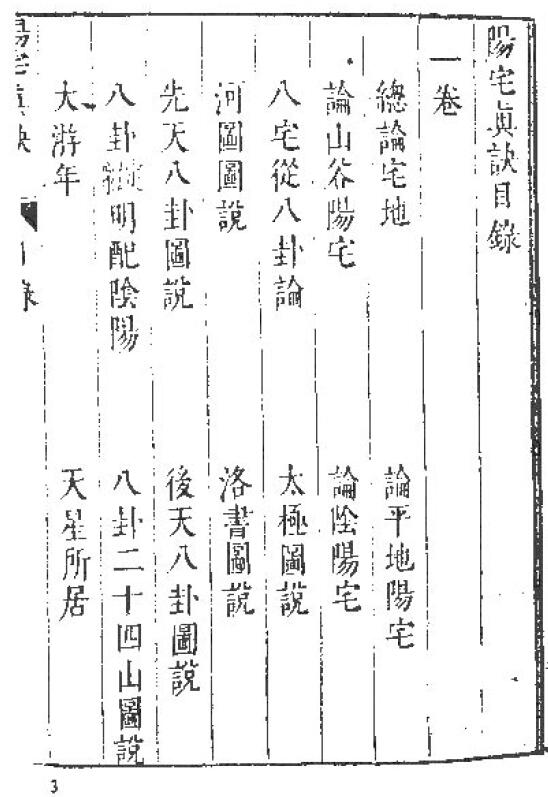 陽宅真訣目錄
一卷
總論宅地　論平地陽宅
論山谷陽宅　論陰陽宅
八宅從八卦論　太極圖說
河圖圖說　洛書圖說
先天八卦圖說　後天八卦圖說
八卦 明配陰陽　八卦二十四山圖說
大游年　天星所居
陽宅真訣　目錄
3